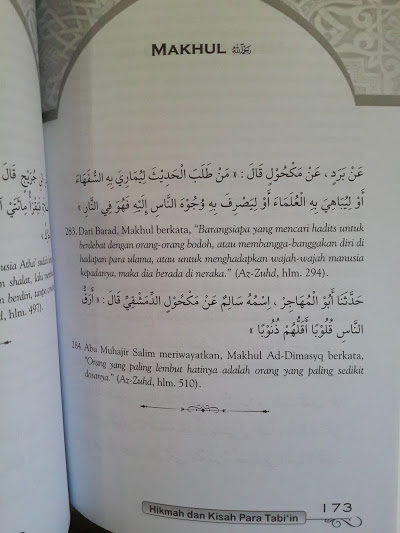 MAKHUL
عَنْ بَرَدٍ ، عَنْ مَكْحُوْلٍ قَالَ : « مَنْ طَلَبَ الْحَدِيْثَ لِيُمَارِيَ بِهِ السُّفَهَاءَ
أَوْ لِيُبَاهِيَ بِهِ الْعُلَمَاءَ أَوْ لِيَصْرِفَ بِهِ وُجُوْهَ النَّاسِ إِلَيْهِ فَهُوَ فِي النَّارِ »
283. Dari Barad, Makhul berkata, "Barangsiapa yang mencari hadits untuk
berdebat dengan orang-orang bodoh, atau membangga-banggakan diri di
hadapan para ulama, atau untuk menghadapkan wajah-wajah manusia
kepadanya, maka dia berada di neraka." (Az-Zuhd, hlm. 294).
حَدَّثَنَا أَبُو الْمُهَاجِرِ ، اِسْمُهُ سَالِمٌ عَنْ مَكْحُوْلٍ الدِّمَشْقِيِّ قَالَ : « أَرَقُّ
النَّاسِ قُلُوْبًا أَقَلُّهُمْ ذُنُوْبًا »
284. Abu Muhajir Salim meriwayatkan, Makhul Ad-Dimasyq berkata,
"Orang yang paling lembut hatinya adalah orang yang paling sedikit
dosanya." (Az-Zuhd, hlm. 510).
Hikmah dan Kisah Para Tabi'in 173
قَالَ
Atha' sudah
shalat, lalu
berdiri,
hlm. 497).